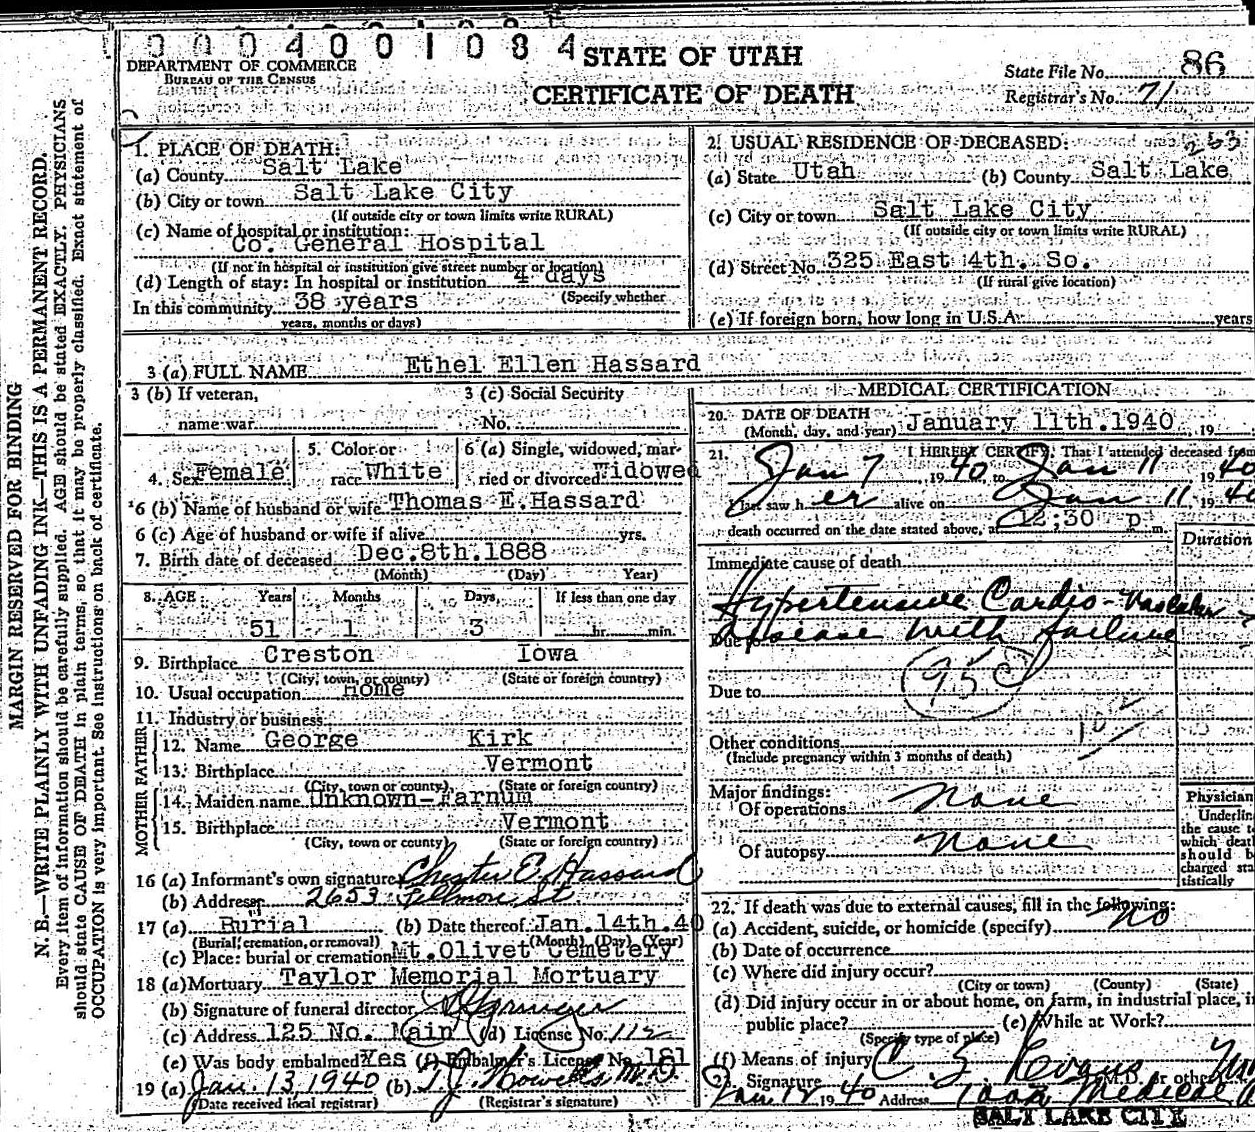 0004001084
STATE OF UTAH
CERTIFICATE OF DEATH
DEPARTMENT OF COMMERCE
BUREAU OF THE CENSUS
State File No. 86
Registrar's No. 71
MARGIN RESERVED FOR BINDING
N. B.—WRITE PLAINLY WITH UNFADING INK—THIS IS A PERMANENT RECORD.
Every item of information should be carefully supplied. AGE should be stated EXACTLY. PHYSICIANS
should state CAUSE OF DEATH in plain terms, so that it may be properly classified. Exact statement of
OCCUPATION is very important. See instructions on back of certificate.
1. PLACE OF DEATH:
(a) County Salt Lake
(b) City or town Salt Lake City
(If outside city or town limits write RURAL)
(c) Name of hospital or institution:
Co. General Hospital
(If not in hospital or institution give street number or location)
(d) Length of stay: In hospital or institution 4 days
(Specify whether
In this community 38 years
years, months or days)
2. USUAL RESIDENCE OF DECEASED: 263
(a) State Utah (b) County Salt Lake
(c) City or town Salt Lake City
(If outside city or town limits write RURAL)
(d) Street No. 325 East 4th. So.
(If rural give location)
(e) If foreign born, how long in U.S.A. years
3 (a) FULL NAME Ethel Ellen Hassard
3 (b) If veteran,
name war
3 (c) Social Security
No.
4. Sex Female
5. Color or
race White
6 (a) Single, widowed, mar-
ried or divorced Widowed
6 (b) Name of husband or wife Thomas E. Hassard
6 (c) Age of husband or wife if alive yrs.
7. Birth date of deceased Dec. 8th. 1888
(Month) (Day) Year)
8. AGE Years Months Days If less than one day
51 1 3 hr. min.
9. Birthplace Creston Iowa
(City, town, or county) (State or foreign country)
10. Usual occupation Home
11. Industry or business
FATHER
12. Name George Kirk
13. Birthplace Vermont
(City, town or county) (State or foreign country)
MOTHER
14. Maiden name Unknown-Farnum
15. Birthplace Vermont
(City, town or county) (State or foreign country)
16 (a) Informant's own signature Chester E. Hassard
(b) Address 2653 Fillmore St
17 (a) Burial (b) Date thereof Jan. 14th. 40
(Burial, cremation, or removal) (Month) (Day) (Year)
(c) Place: burial or cremation Mt. Olivet Cemetery
18 (a) Mortuary Taylor Memorial Mortuary
(b) Signature of funeral director
(c) Address 125 No. Main (d) License No. 112
(e) Was body embalmed? Yes (f) Embalmer's License No. 181
19 (a) Jan. 13, 1940 (b) T. J. Howells M.D.
(Date received local registrar) (Registrar's signature)
MEDICAL CERTIFICATION
20. DATE OF DEATH
(Month, day, and year) January 11th. 1940, 19
21. I HEREBY CERTIFY, That I attended deceased from
Jan 7, 1940, to Jan 11 1940
I last saw her alive on Jan 11, 1940
death occurred on the date stated above, at 12:30 p. m.
Duration
Immediate cause of death
Hypertensive Cardio-Vascular
Due to disease with failure
95c
Due to
Other conditions
(Include pregnancy within 3 months of death)
Major findings:
Of operations None
Of autopsy None
Physician
Underline
the cause
which death
should b
charged sta
tistically
22. If death was due to external causes, fill in the following:
(a) Accident, suicide, or homicide (specify) No
(b) Date of occurrence
(c) Where did injury occur?
(City or town) (County) (State)
(d) Did injury occur in or about home, on farm, in industrial place, i
public place? (e) While at Work?
(Specify type of place)
(f) Means of injury
23. Signature C. S. Evans M.D. or other
Jan 12 1940 Address Medical
SALT LAKE CITY